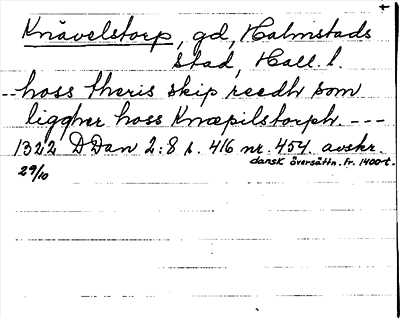 Knävelstorp, gd, Halmstads
stad, Hall. l.
--hoss theris skip reedh som
liggher hoss Knæpilstorph. ---
1322 DDan 2:8 s. 416 nr. 454. avskr.
dansk översättn. fr. 1400-t.
29/10